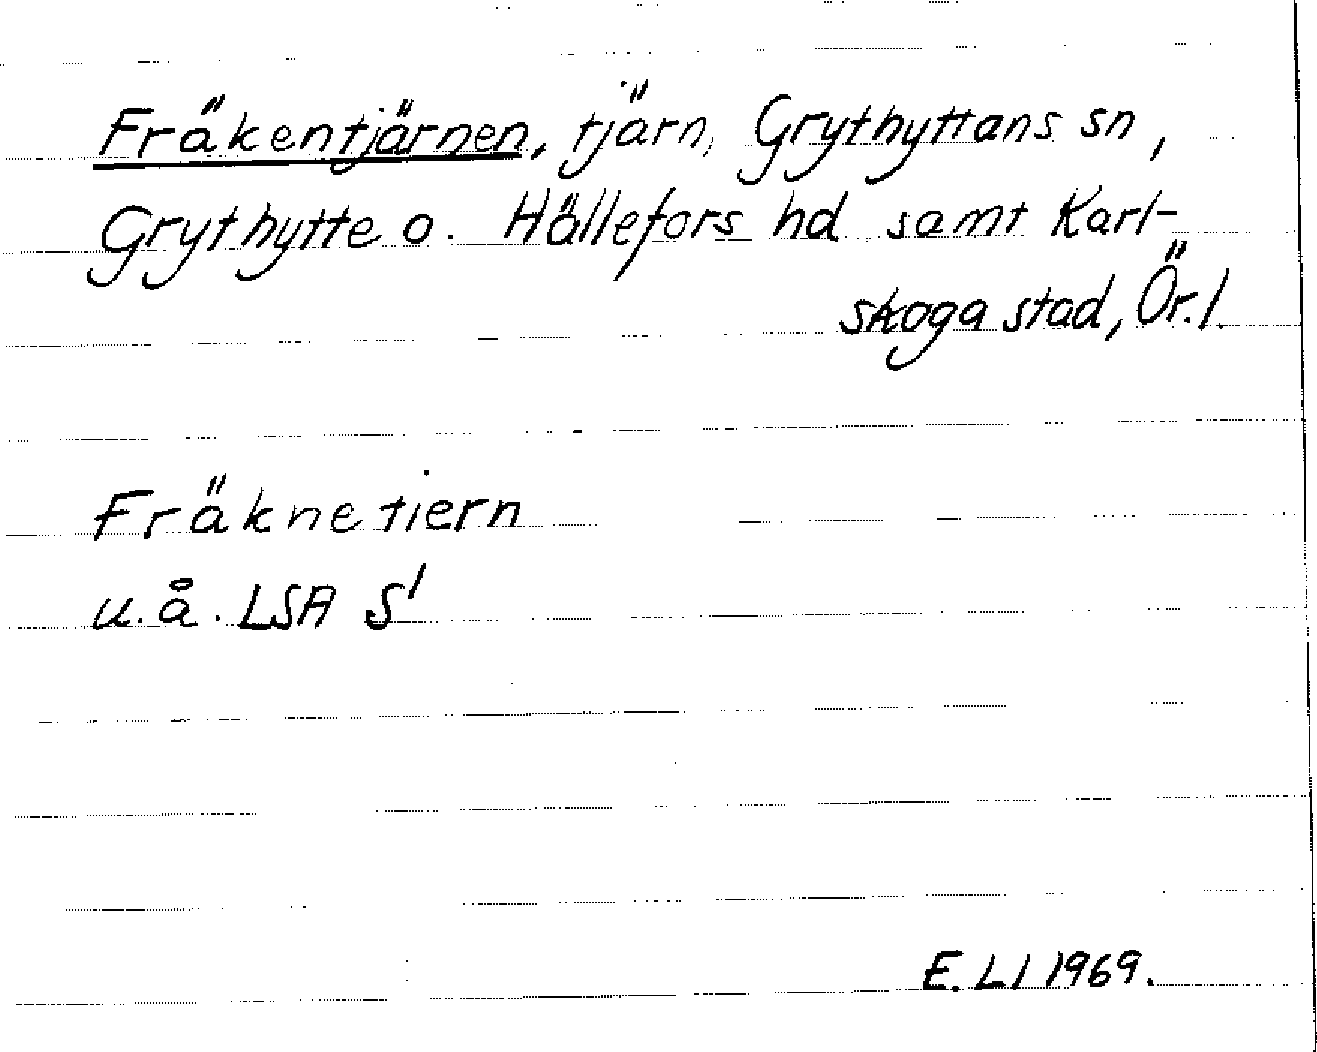 Fräkentjärnen, tjärn, Grythyttans sn,
Grythytte o. Hällefors hd samt Karl-
skoga stad, Ör.l.
Fräknetiern
u.å. LSA S1
E. Ll 1969.